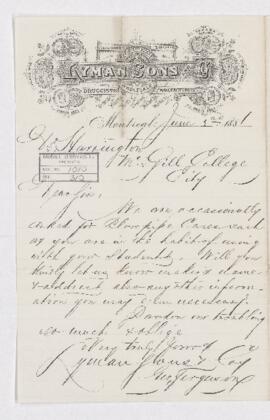 LYMAN SONS & Co
DRUGGISTS
Montreal, June 3rd 1881
Dr Harrington
McGill College
City
Dear Sir,
We are occasionally
asked for Blowpipe Cases such
as you are in the habit of using
with your students. Will you
kindly let us know maker's name
& address also any other inform-
ation you may deem necessary.
Pardon our troubling
so much & oblige
Very truly yours
Lyman Sons & Coy
Ferguson